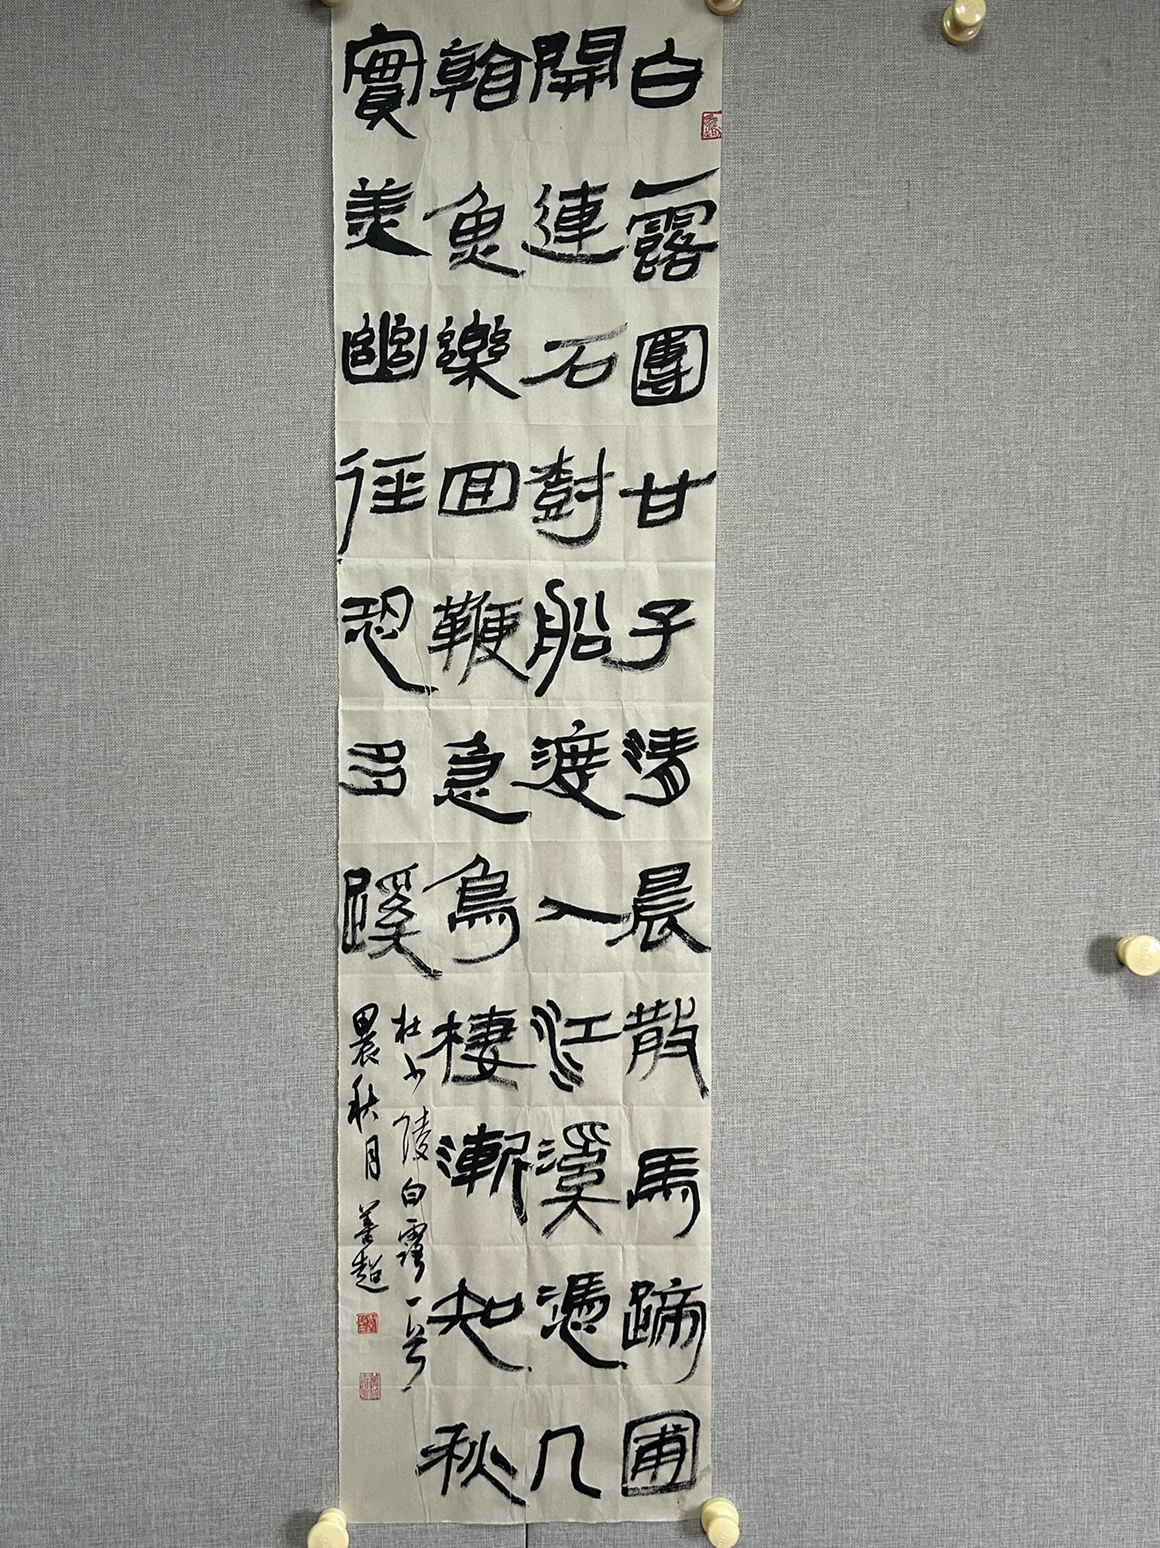 白露團甘子清晨散馬蹄圃
開連石樹船渡入江溪憑几
看魚樂回鞭急鳥棲漸知秋
實美幽徑恐多蹊
杜少陵白露一首
甲辰秋月善超